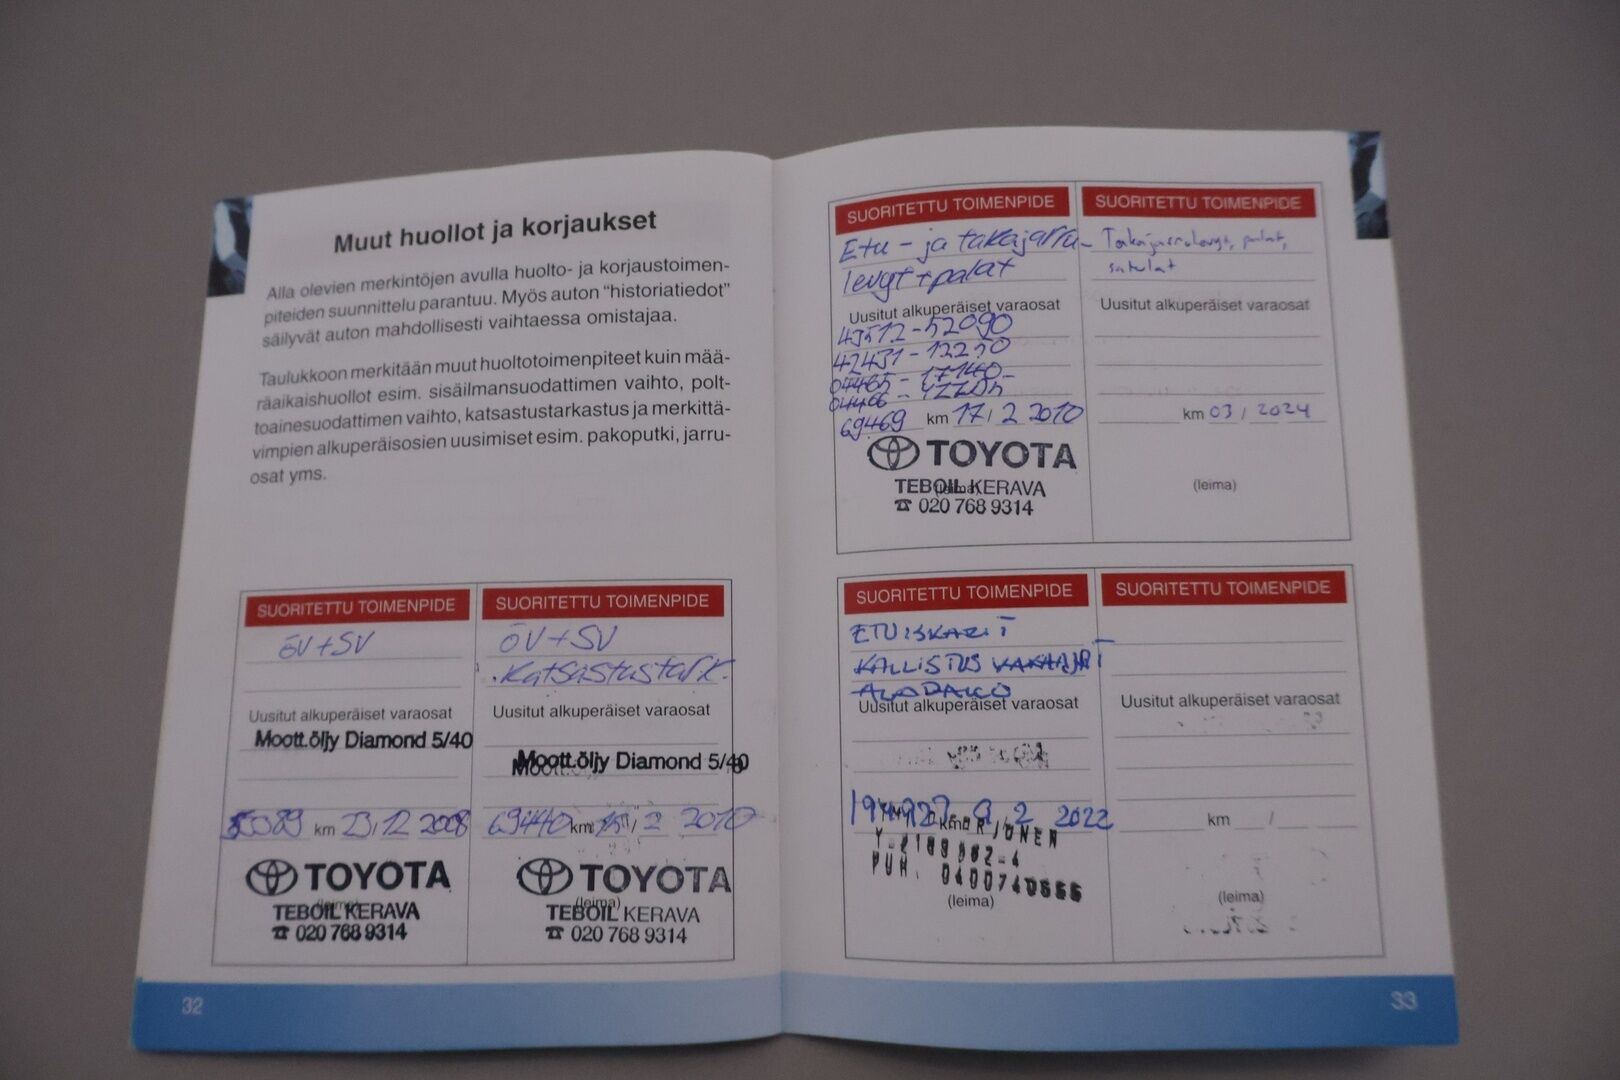 Muut huollot ja korjaukset
Alla olevien merkintöjen avulla huolto- ja korjaustoimen-
piteiden suunnittelu parantuu. Myös auton “historiatiedot”
säilyvät auton mahdollisesti vaihtaessa omistajaa.
Taulukkoon merkitään muut huoltotoimenpiteet kuin mää-
räaikaishuollot esim. sisäilmansuodattimen vaihto, polt-
toainesuodattimen vaihto, katsastustarkastus ja merkittä-
vimpien alkuperäisosien uusimiset esim. pakoputki, jarru-
osat yms.
SUORITETTU TOIMENPIDE
ÖV+SV
Uusitut alkuperäiset varaosat
Moott.öljy Diamond 5/40
km 23/12 2008
TOYOTA
(leima)
TEBOIL KERAVA
☎ 020 768 9314
SUORITETTU TOIMENPIDE
ÖV+SV
Katsastustark.
Uusitut alkuperäiset varaosat
Moott.öljy Diamond 5/40
69440 km 15/2 2010
TOYOTA
(leima)
TEBOIL KERAVA
☎ 020 768 9314
32
SUORITETTU TOIMENPIDE
Etu- ja takajarru-
levyt + palat
Uusitut alkuperäiset varaosat
43512-52090
42431-12230
04465-17140
04466-
69469 km 17/2 2010
TOYOTA
(leima)
TEBOIL KERAVA
☎ 020 768 9314
SUORITETTU TOIMENPIDE
Takajarrulevyt, palat,
satulat
Uusitut alkuperäiset varaosat
km 03/2024
(leima)
SUORITETTU TOIMENPIDE
ETUISKARIT
KALLISTUS VAKAAJAT
ALATALLO
Uusitut alkuperäiset varaosat
194927 km 9/2 2022
PUH. 0400740666
(leima)
SUORITETTU TOIMENPIDE
Uusitut alkuperäiset varaosat
km /
(leima)
33